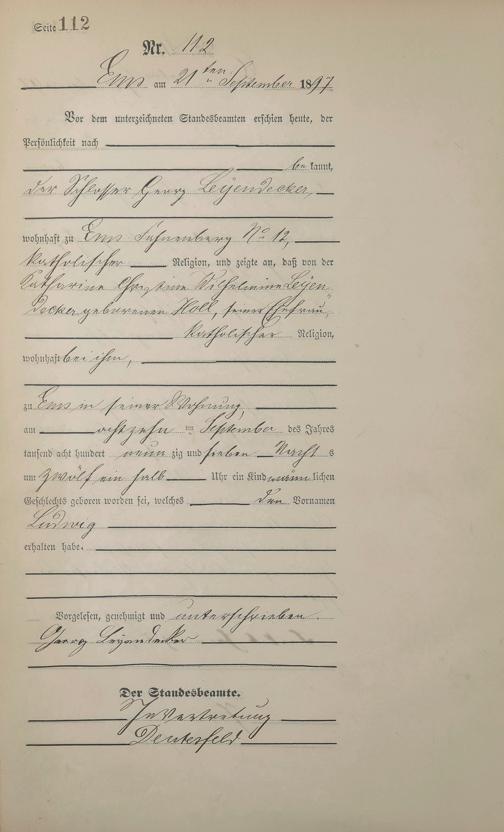 Seite 112
Nr. 112
Ems am 21ten September 1897
Vor dem unterzeichneten Standesbeamten erschien heute, der
Persönlichkeit nach
be kannt,
der Schlosser Georg Leyendecker,
wohnhaft zu Ems No 12,
katholischer Religion, und zeigte an, daß von der
Katharina Christine Wilhelmine Leyen
decker geborenen Holl, seiner Ehefrau,
katholischer Religion,
wohnhaft bei ihm,
zu Ems in seiner Wohnung,
am achtzehn ten September des Jahres
tausend acht hundert neun zig und sieben Nacht s
um zwölf ein halb Uhr ein Kind männ lichen
Geschlechts geboren worden sei, welches den Vornamen
Ludwig
erhalten habe.
Vorgelesen, genehmigt und unterschrieben.
Georg Leyendecker
Der Standesbeamte.
In Vertretung